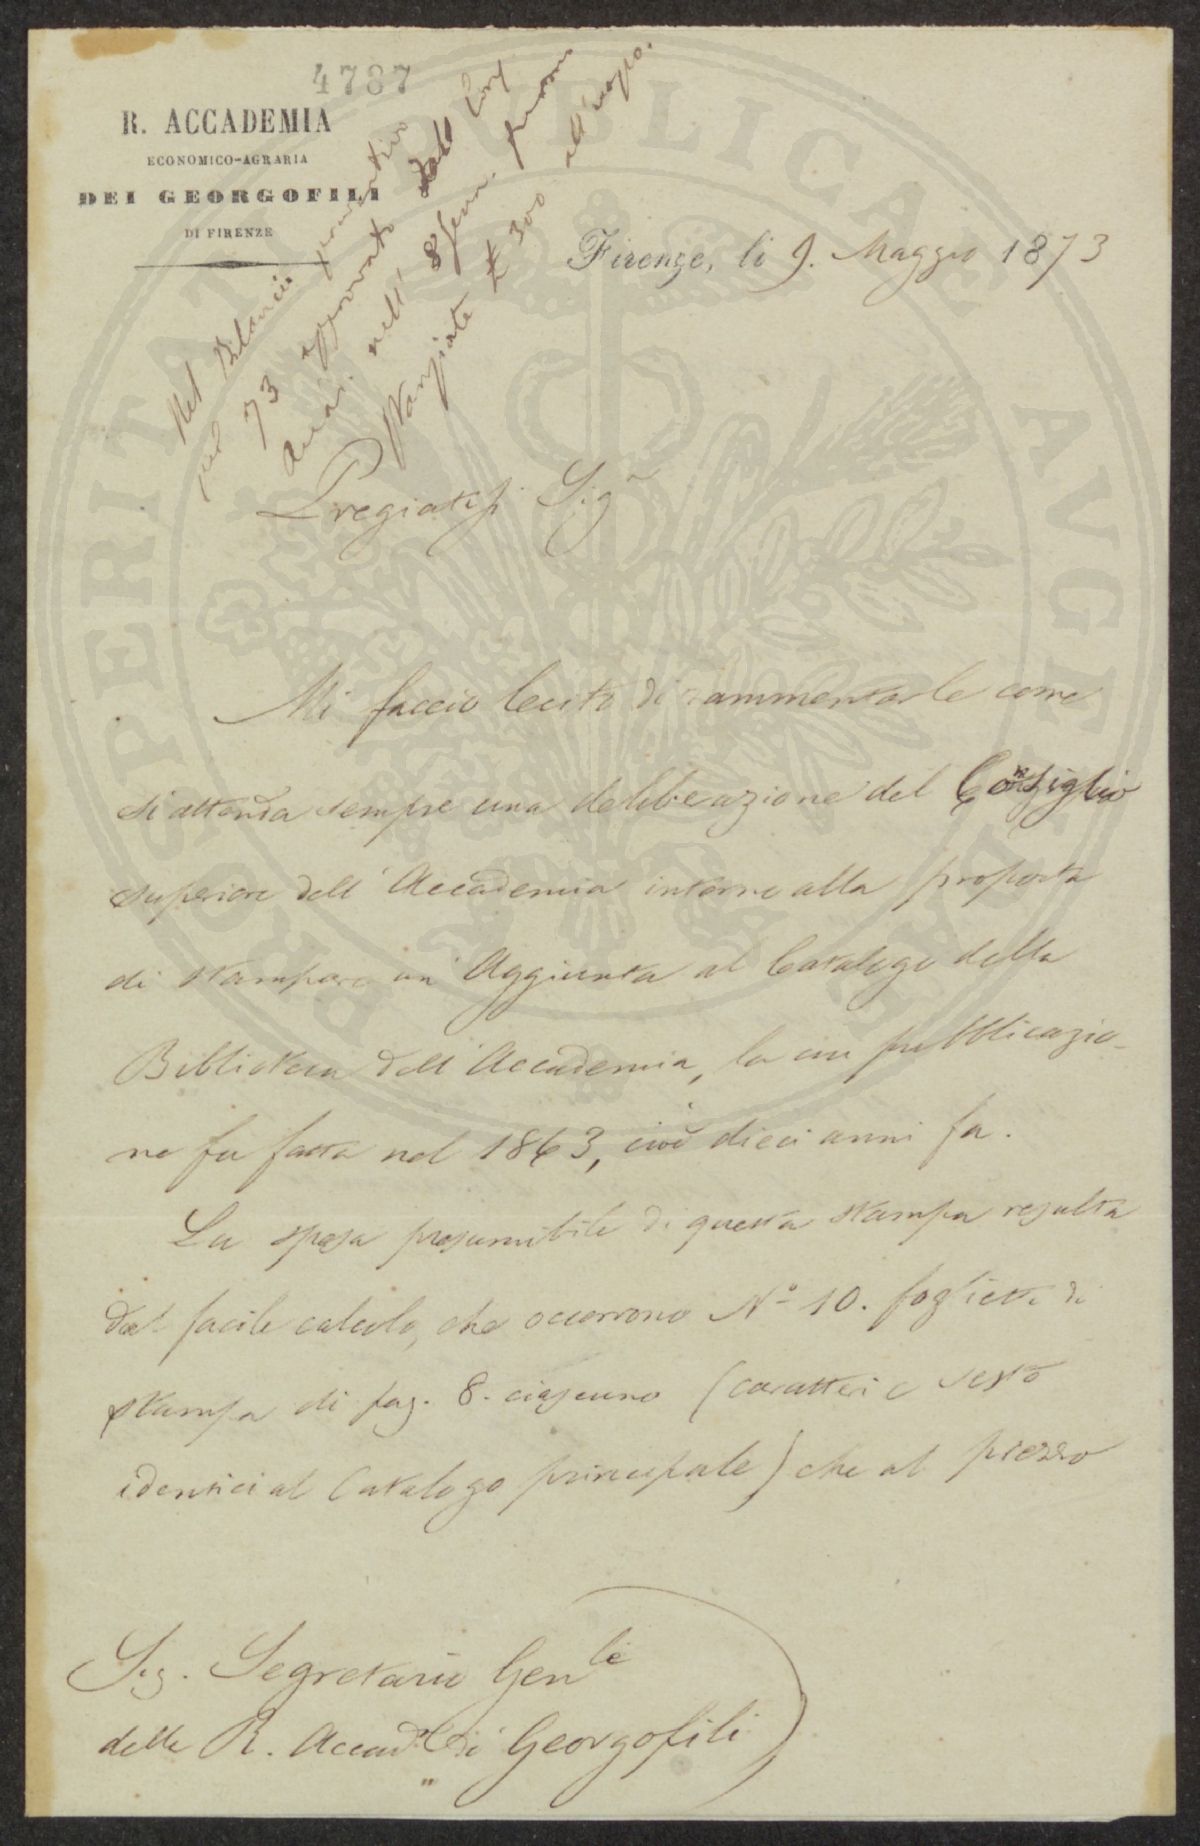 4787
R. ACCADEMIA
ECONOMICO-AGRARIA
DEI GEORGOFILI
DI FIRENZE
Nel Bilancio preventivo
pel 73 approvato dall'
nell' 8 Genn. furono
stanziate £ 300 all'uopo.
Firenze, li 9. Maggio 1873
Pregiatiss. Sigr
Mi faccio lecito di rammentarle come
si attenda sempre una deliberazione del Consiglio
superiore dell' Accademia intorno alla proposta
di stampare un' Aggiunta al Catalogo della
Biblioteca dell' Accademia, la cui pubblicazio-
ne fu fatta nel 1863, cioè dieci anni fa.
La spesa presumibile di questa stampa resulta
dal facile calcolo, che occorrono No 10. foglietti di
stampa di pag. 8. ciascuno (caratteri e sesto
identici al Catalogo principale) che al prezzo
Sig. Segretario Genle
della R. Accad. dei Georgofili
PROSPERITATI PVBLICAE AVGENDAE